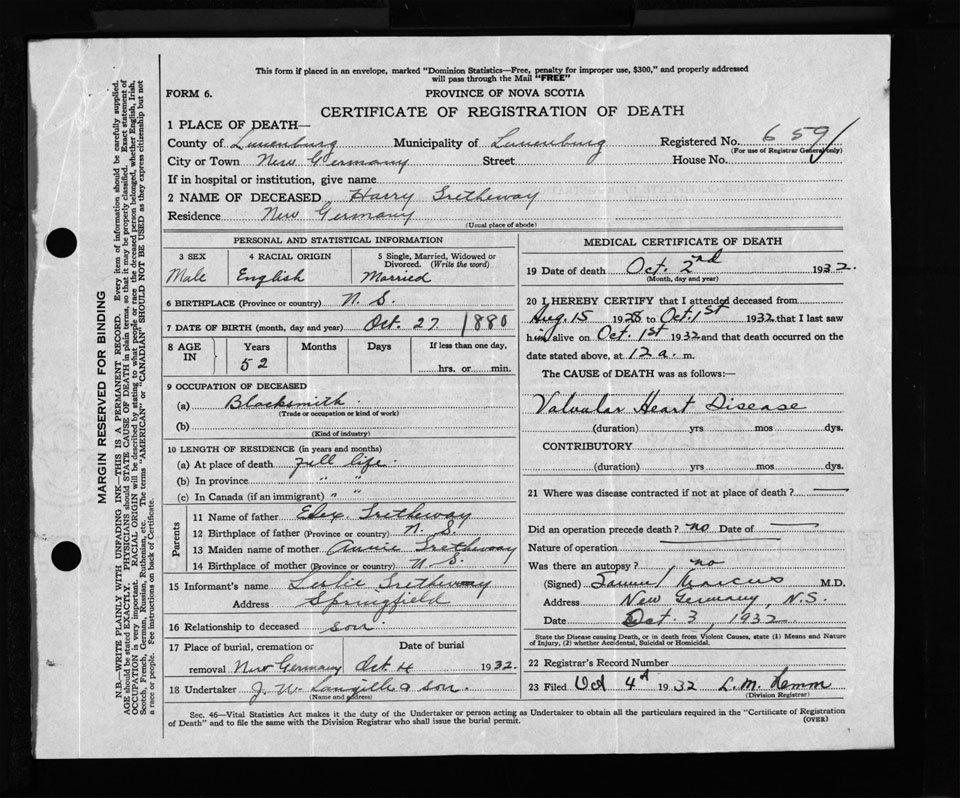 This form if placed in an envelope, marked "Dominion Statistics—Free, penalty for improper use, $300," and properly addressed
will pass through the Mail "FREE"
FORM 6.
PROVINCE OF NOVA SCOTIA
CERTIFICATE OF REGISTRATION OF DEATH
1 PLACE OF DEATH—
County of Lunenburg Municipality of Lunenburg Registered No. 6591
(For use of Registrar General only)
City or Town New Germany Street House No.
If in hospital or institution, give name
2 NAME OF DECEASED Harry Tretheway
Residence New Germany
(Usual place of abode)
PERSONAL AND STATISTICAL INFORMATION
3 SEX 4 RACIAL ORIGIN 5 Single, Married, Widowed or
Divorced. (Write the word)
Male English Married
6 BIRTHPLACE (Province or country) N. S.
7 DATE OF BIRTH (month, day and year) Oct. 27 1880
8 AGE IN Years Months Days If less than one day,
52 hrs. or min.
9 OCCUPATION OF DECEASED
(a) Blacksmith.
(Trade or occupation or kind of work)
(b)
(Kind of industry)
10 LENGTH OF RESIDENCE (in years and months)
(a) At place of death full life.
(b) In province " "
(c) In Canada (if an immigrant) " "
Parents
11 Name of father Tretheway
12 Birthplace of father (Province or country) N. S.
13 Maiden name of mother Annie Tretheway
14 Birthplace of mother (Province or country) N. S.
15 Informant's name Leslie Tretheway
Address Springfield
16 Relationship to deceased son
17 Place of burial, cremation or Date of burial
removal New Germany Oct 4 1932.
18 Undertaker J. W. Langille & son.
(Name and address)
MEDICAL CERTIFICATE OF DEATH
19 Date of death Oct. 2nd 1932.
(Month, day and year)
20 I HEREBY CERTIFY that I attended deceased from
Aug. 15 1928 to Oct. 1st 1932 that I last saw
him alive on Oct. 1st 1932 and that death occurred on the
date stated above, at 12 a. m.
The CAUSE of DEATH was as follows:—
Valvular Heart Disease
(duration) yrs mos dys.
CONTRIBUTORY
(duration) yrs mos dys.
21 Where was disease contracted if not at place of death?
Did an operation precede death? no Date of
Nature of operation
Was there an autopsy? no
(Signed) Samuel Marcus M.D.
Address New Germany, N.S.
Date Oct. 3, 1932
State the Disease causing Death, or in death from Violent Causes, state (1) Means and Nature
of Injury, (2) whether Accidental, Suicidal or Homicidal.
22 Registrar's Record Number
23 Filed Oct 4th 1932 L. M.
(Division Registrar)
Sec. 46—Vital Statistics Act makes it the duty of the Undertaker or person acting as Undertaker to obtain all the particulars required in the "Certificate of Registration
of Death" and to file the same with the Division Registrar who shall issue the burial permit.
(OVER)
MARGIN RESERVED FOR BINDING
N.B.—WRITE PLAINLY WITH UNFADING INK—THIS IS A PERMANENT RECORD. Every item of information should be carefully supplied.
AGE should be stated EXACTLY. PHYSICIANS should STATE CAUSE OF DEATH in plain terms, so that it may be properly classified. Exact statement of
OCCUPATION is very important. RACIAL ORIGIN will be described by stating to what people or race the deceased person belonged, whether English, Irish,
Scotch, French, German, Russian, Ruthenian, etc. The terms "AMERICAN" or "CANADIAN" SHOULD NOT BE USED as they express citizenship but not
a race or people. See instructions on back of Certificate.